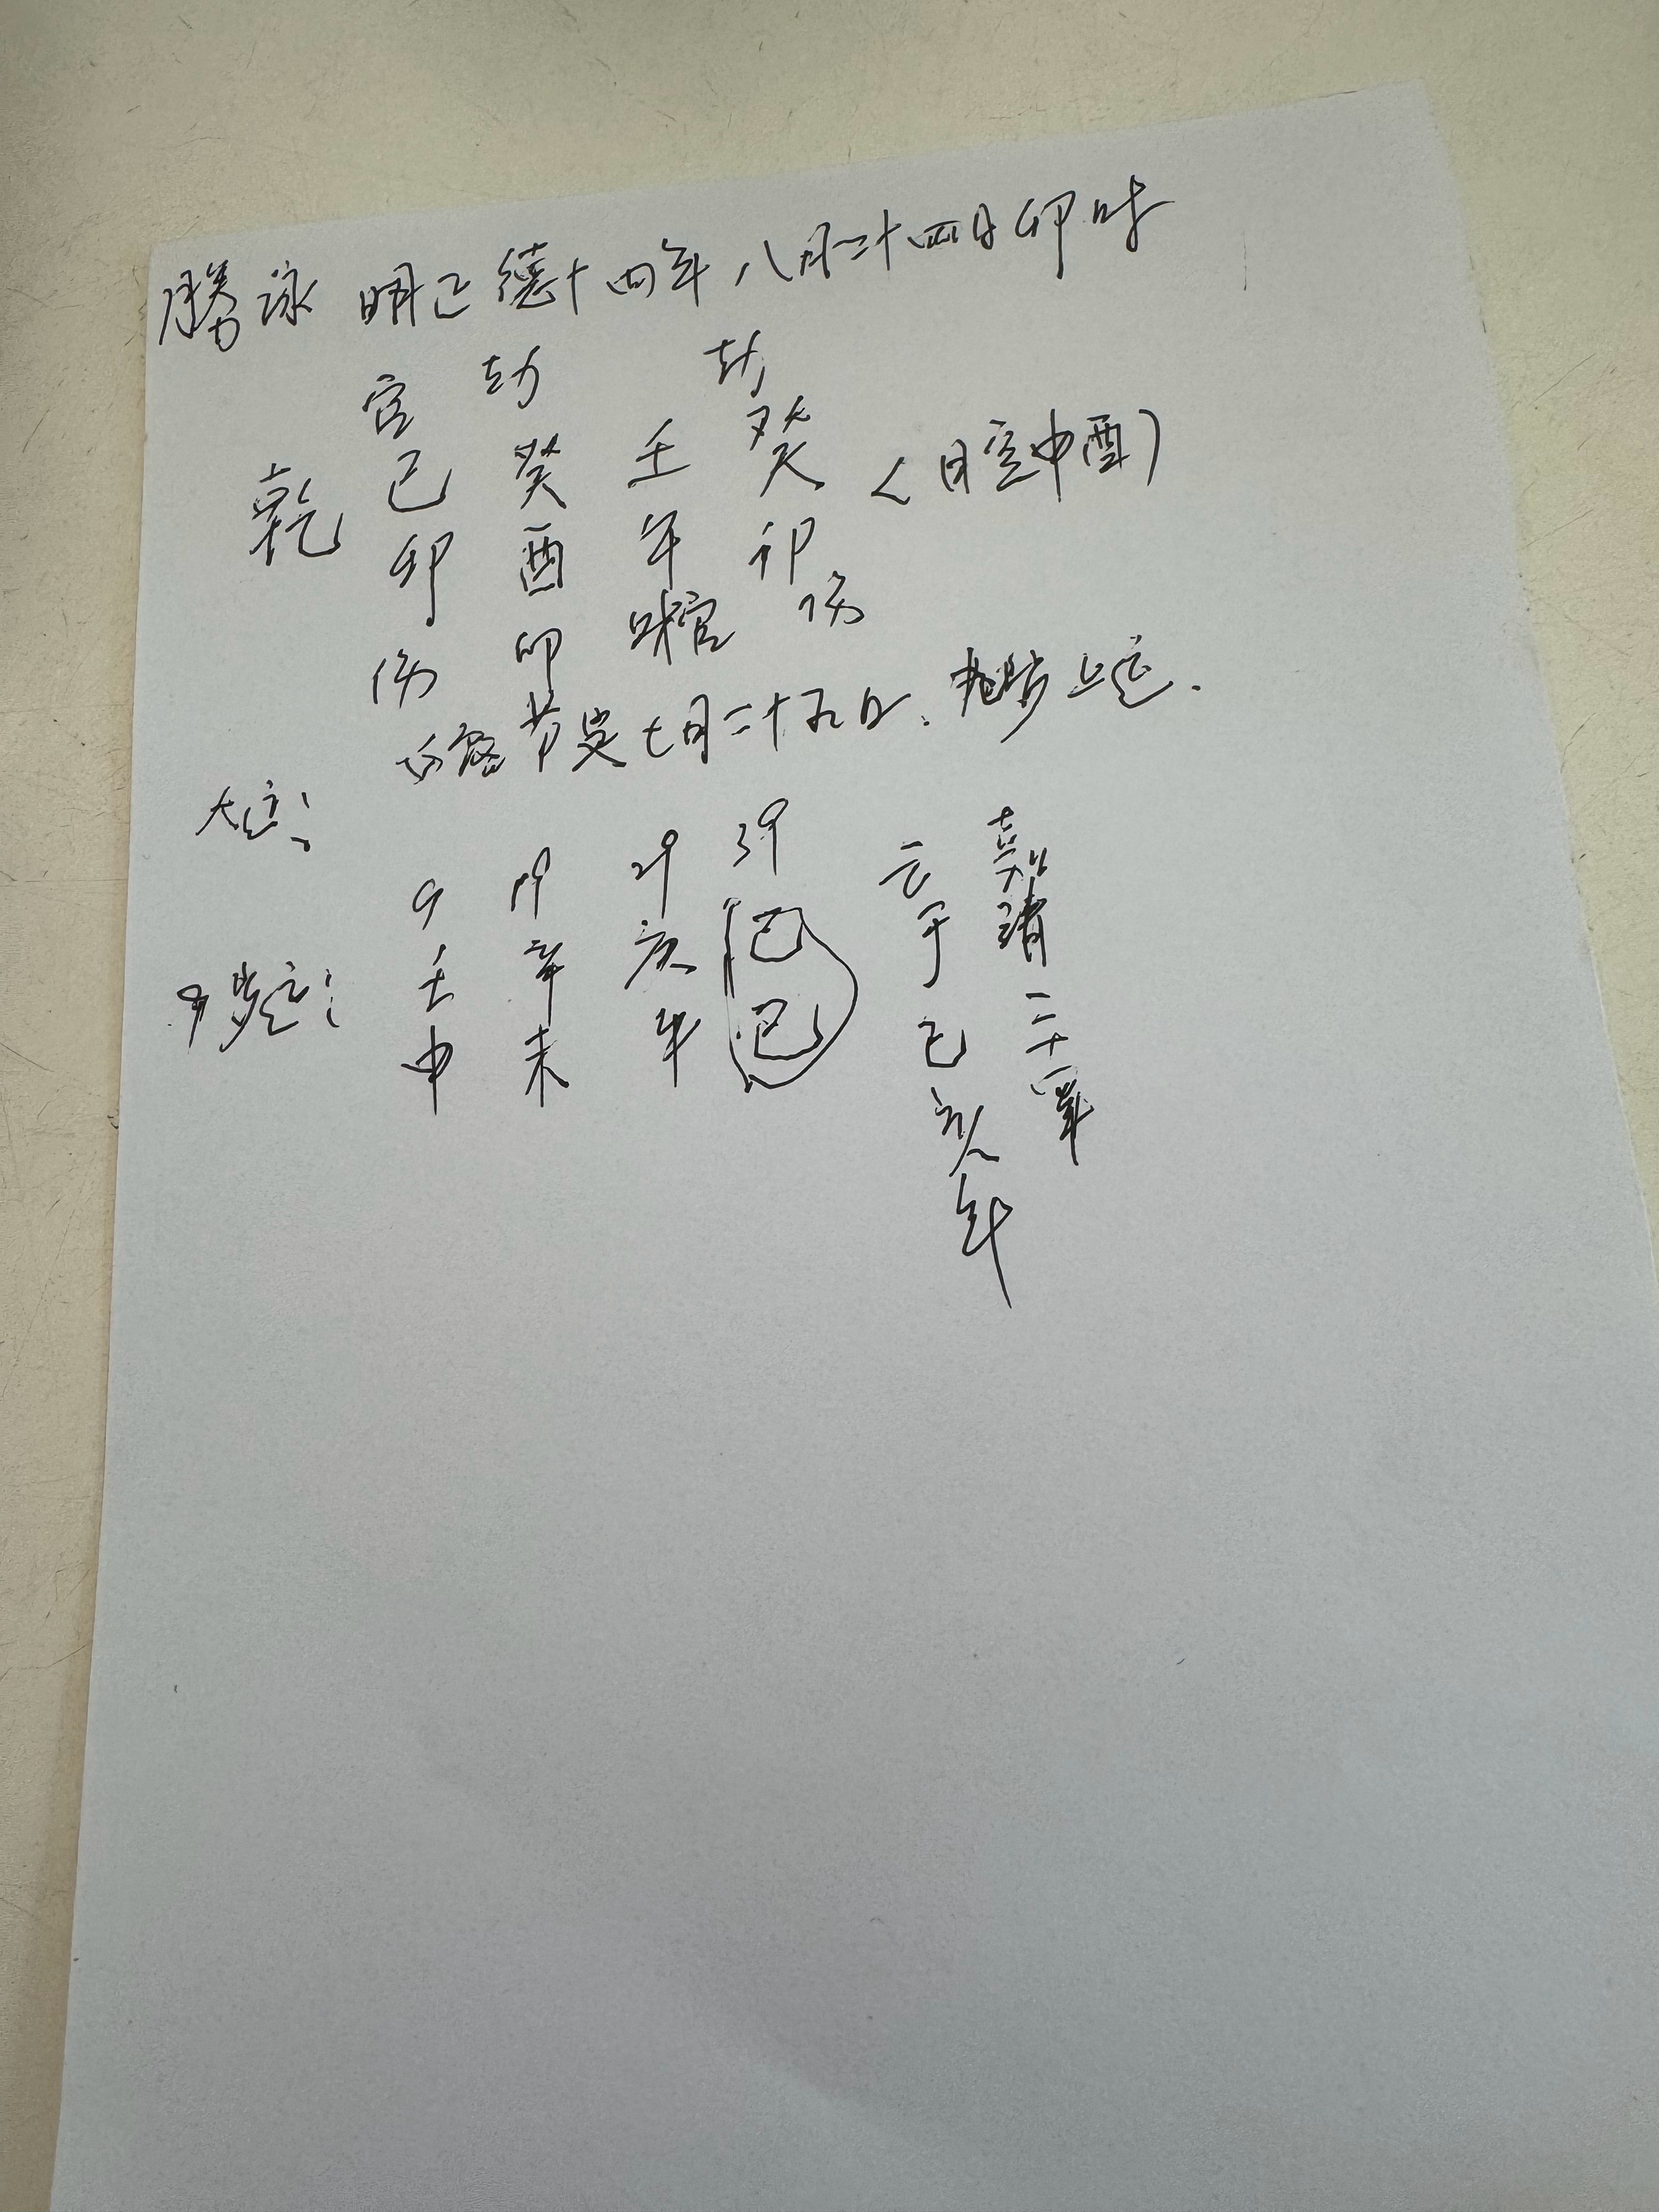 胜泳 明正德十四年八月二十四日卯时
官 劫 劫
乾 己 癸 壬 癸 (日空申酉)
卯 酉 午 卯
伤 印 财官 伤
白露节是七月二十九日. 九岁上运.
大运:
9 19 29 39
9岁运: 壬 辛 庚 己
申 未 午 巳
亡于己巳年
嘉靖二十四年